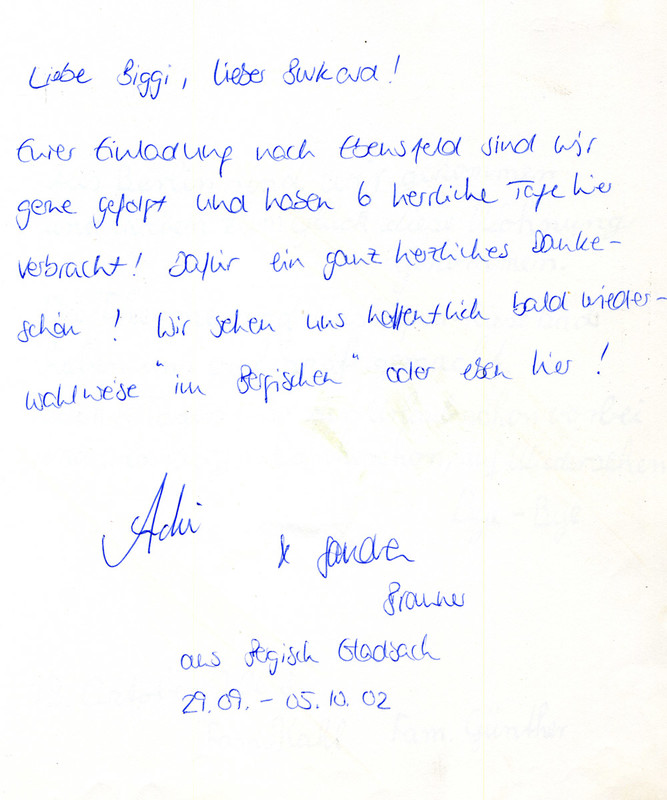 Liebe Biggi, lieber Burkard!
Eurer Einladung nach Ebensfeld sind wir
gerne gefolgt und haben 6 herrliche Tage hier
verbracht! Dafür ein ganz herzliches Danke-
schön! Wir sehen uns hoffentlich bald wieder-
wahlweise "im Bergischen" oder eben hier!
Adi
& Sandra
aus Bergisch Gladbach
29.09. - 05.10.02